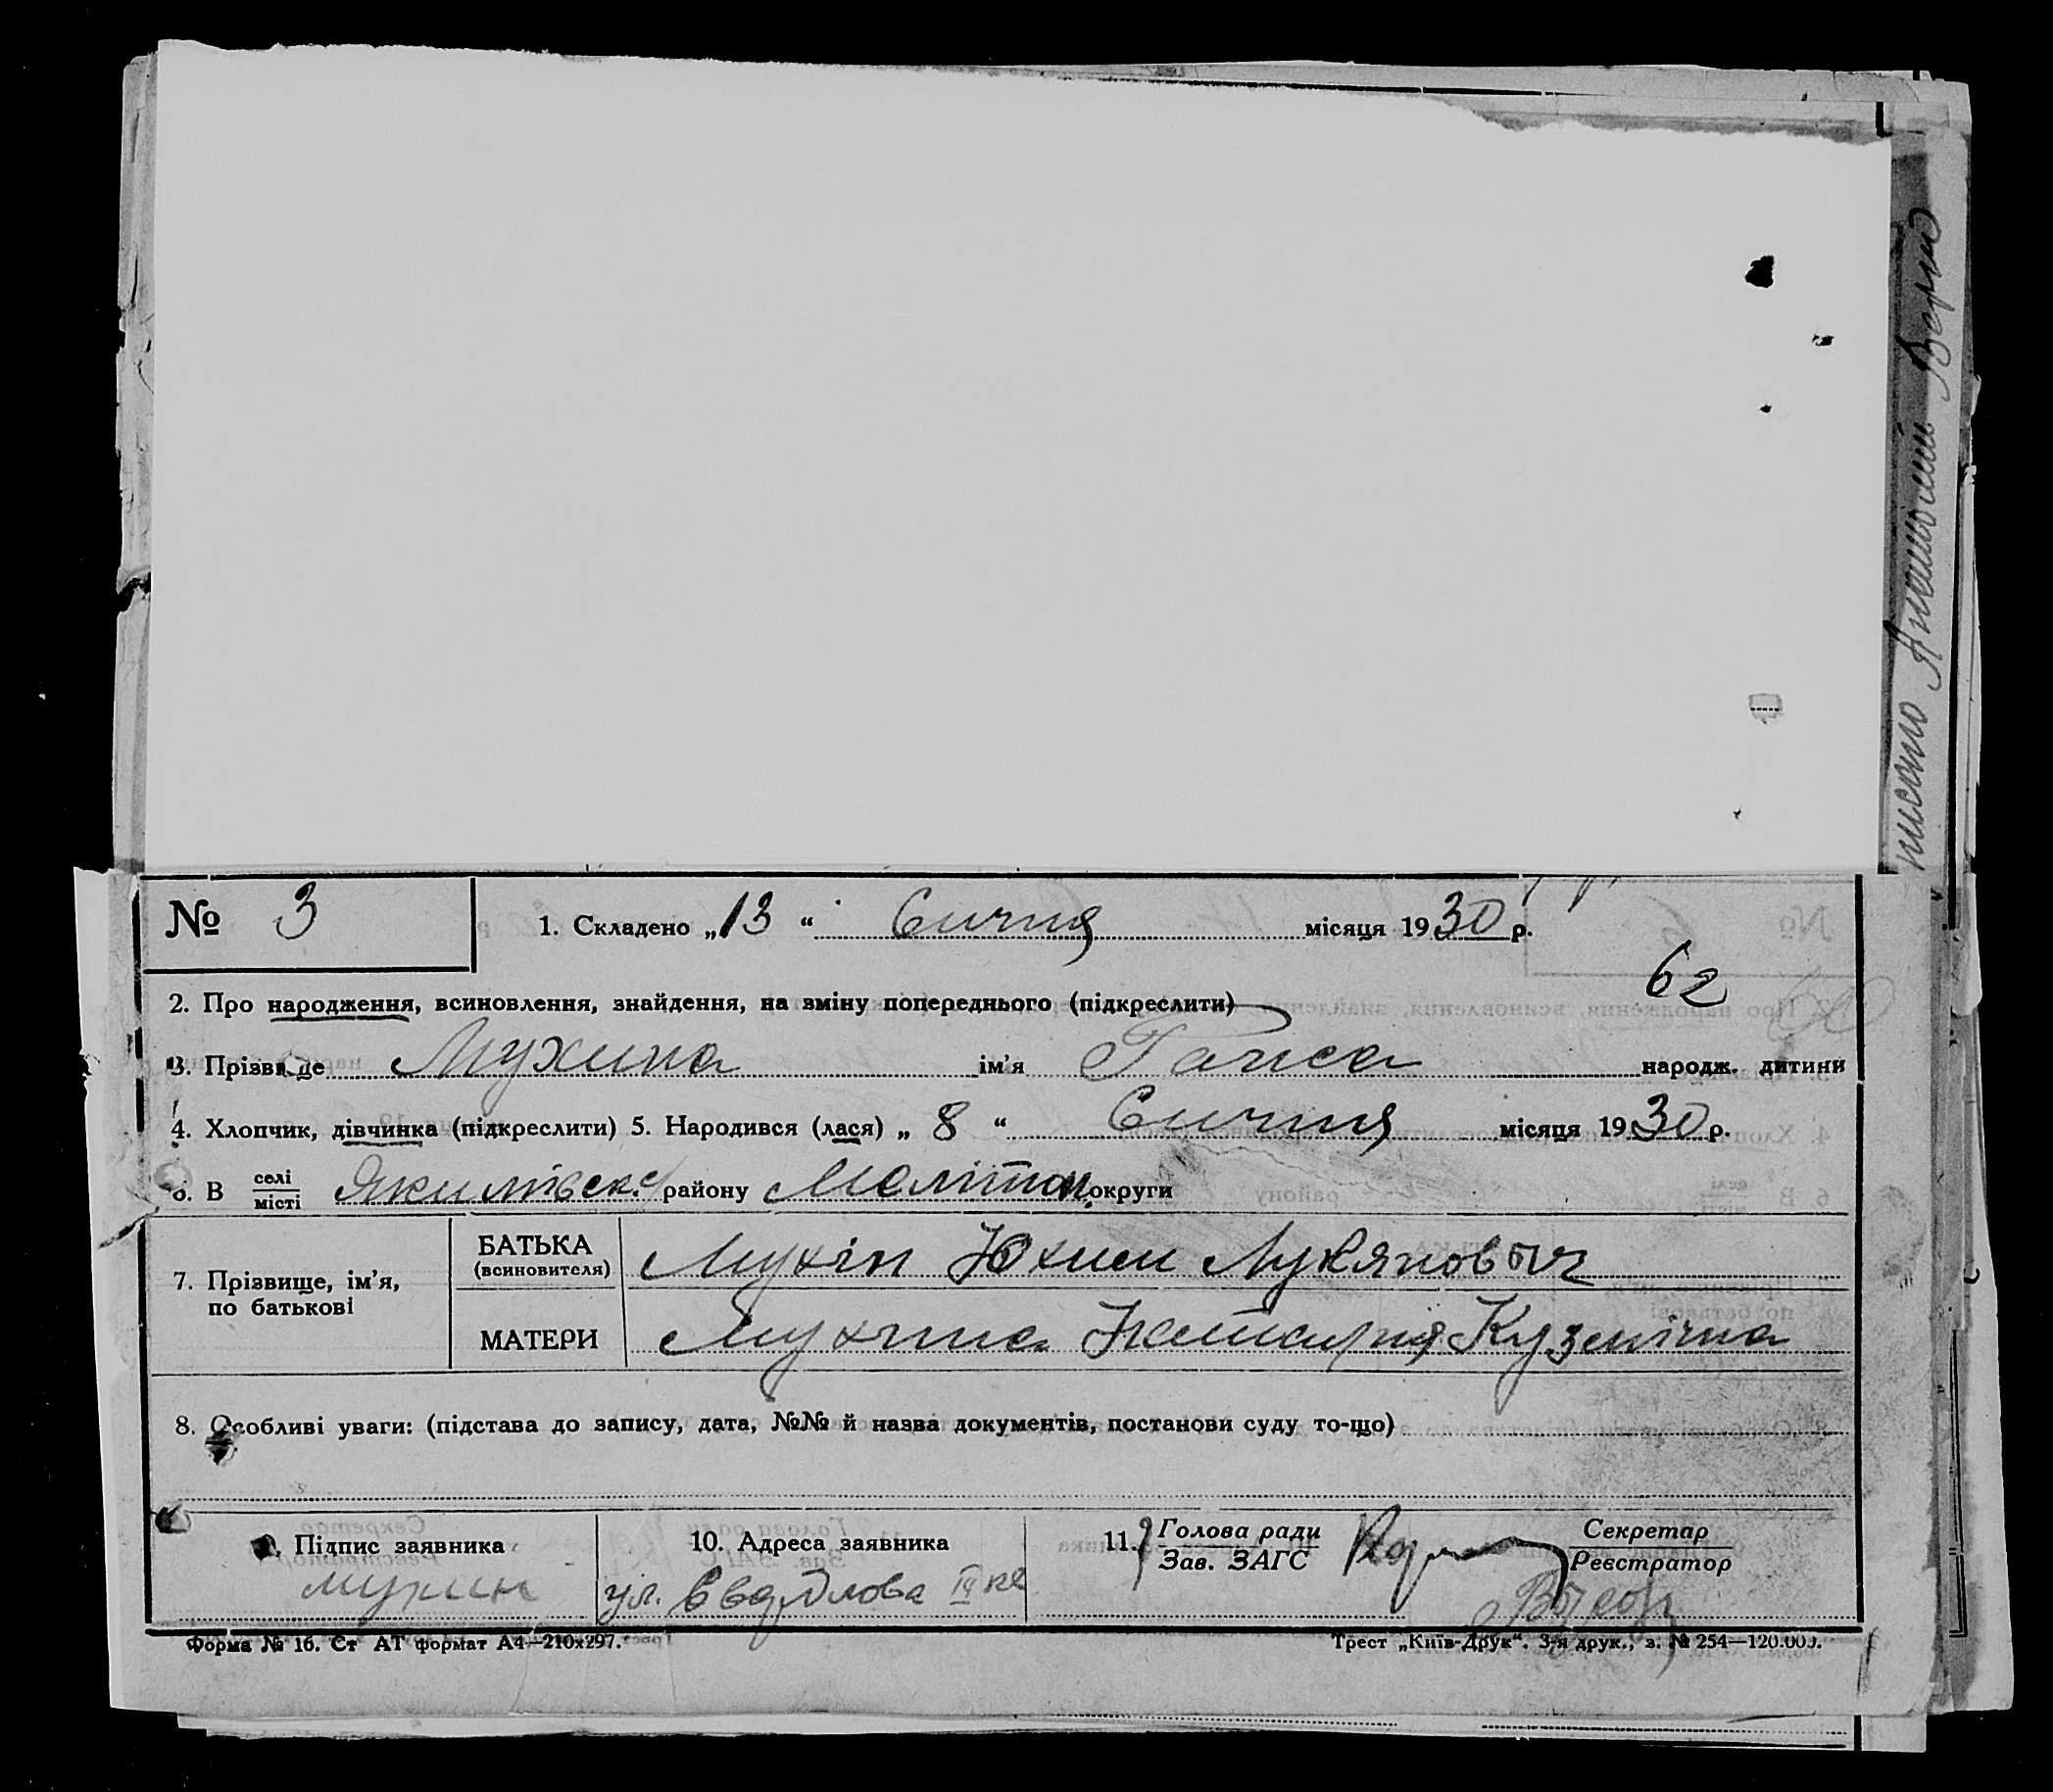 № 3
1. Складено „13 “ Сичня місяця 1930 р.
62
2. Про народження, всиновлення, знайдення, на зміну попереднього (підкреслити)
3. Прізвище Мухина ім'я Раиса народж. дитини
4. Хлопчик, дівчинка (підкреслити) 5. Народився (лася) „ 8 “ Сичня місяця 1930 р.
6. В селі місті Якимівск. району Меліто округи
7. Прізвище, ім'я, по батькові
БАТЬКА (всиновителя) Мухін Юхим Лукянович
МАТЕРИ Мухина Наталія Кузмічна
8. Особливі уваги: (підстава до запису, дата, №№ й назва документів, постанови суду то-що)
9. Підпис заявника
мухин
10. Адреса заявника
ул. Свердлова
11. Голова ради Зав. ЗАГС
Секретар Реєстратор
Форма № 16. Ст АТ формат А4—210х297.
Трест „Київ-Друк“. 3-я друк., з. № 254—120.000.